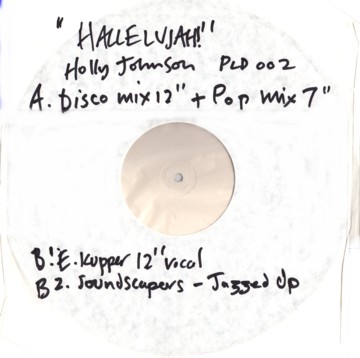 "HALLELUJAH!"
Holly Johnson PLD 002
A. Disco mix 12" + Pop mix 7"
B! E. Kupper 12" vocal
B 2. Soundscapers - Jazzed Up